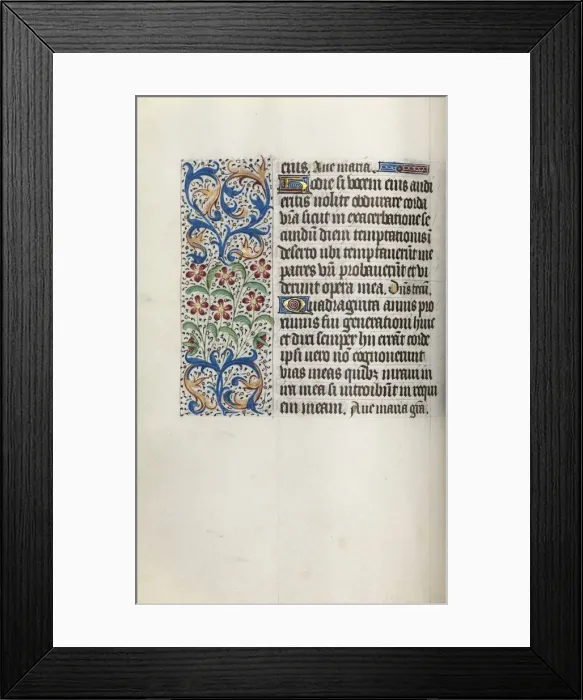 eius. Aue maria.
Hodie si vocem eius audi
eritis nolite obdurare corda
vr̄a sicut in exacerbatione se
cundū diem temptationis ī
deserto ubi temptauerūt me
patres vr̄i probauerūt et vi
derunt opera mea. Dn̄s tecū.
Quadraginta annis pro
ximus fui generationi huic
et dixi semper hii errāt corde
ipsi uero nō cognouerunt
vias meas quibꝫ iuraui in
ira mea si introibūt in requi
em meam. Aue maria gr̄a.